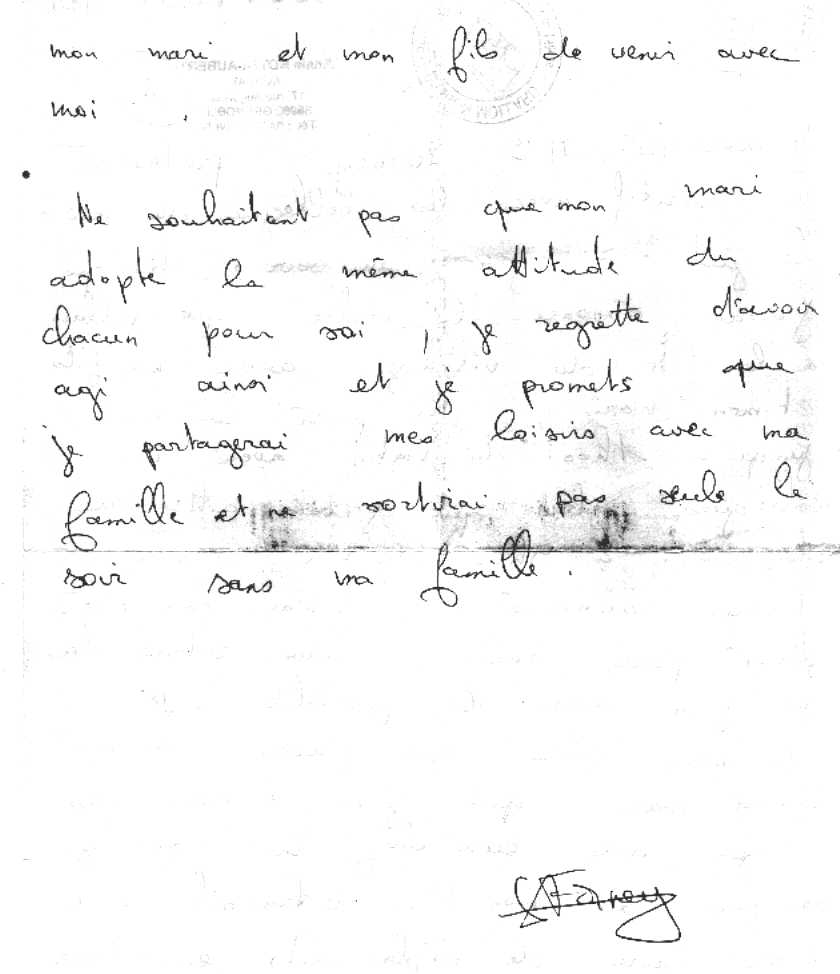 mon mari et mon fils de venir avec
moi.
Ne souhaitant pas que mon mari
adopte la même attitude du
chacun pour soi, je regrette d'avoir
agi ainsi et je promets que
je partagerai mes loisirs avec ma
famille et ne sortirai pas seule le
soir sans ma famille.